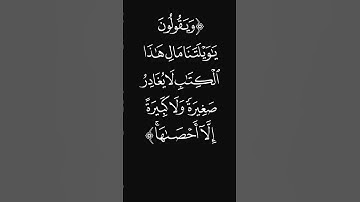 ﴿وَيَقُولُونَ
يَٰوَيْلَتَنَا مَالِ هَٰذَا
ٱلْكِتَٰبِ لَا يُغَادِرُ
صَغِيرَةً وَلَا كَبِيرَةً
إِلَّآ أَحْصَىٰهَا ۚ﴾